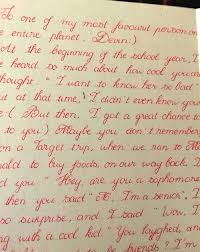 To one of my most favourist person on
entire planet, Devin:)
At the beginning of the school year, I
heard so much about how cool you are
thought: "I want to know her so bad
at that time, I didn't even know your
:( But then, I got a great chance to
to you) Maybe you don't remember,
on a Target trip, when we ran to Mc
nald to buy foods, on our way back, I
d you "Hey, are you a sophomore
then you said "No, I'm a senior", I
so surprise, and I said "Wow, I'm
ng with a cool kid" You laughed, an
be friends? I'm